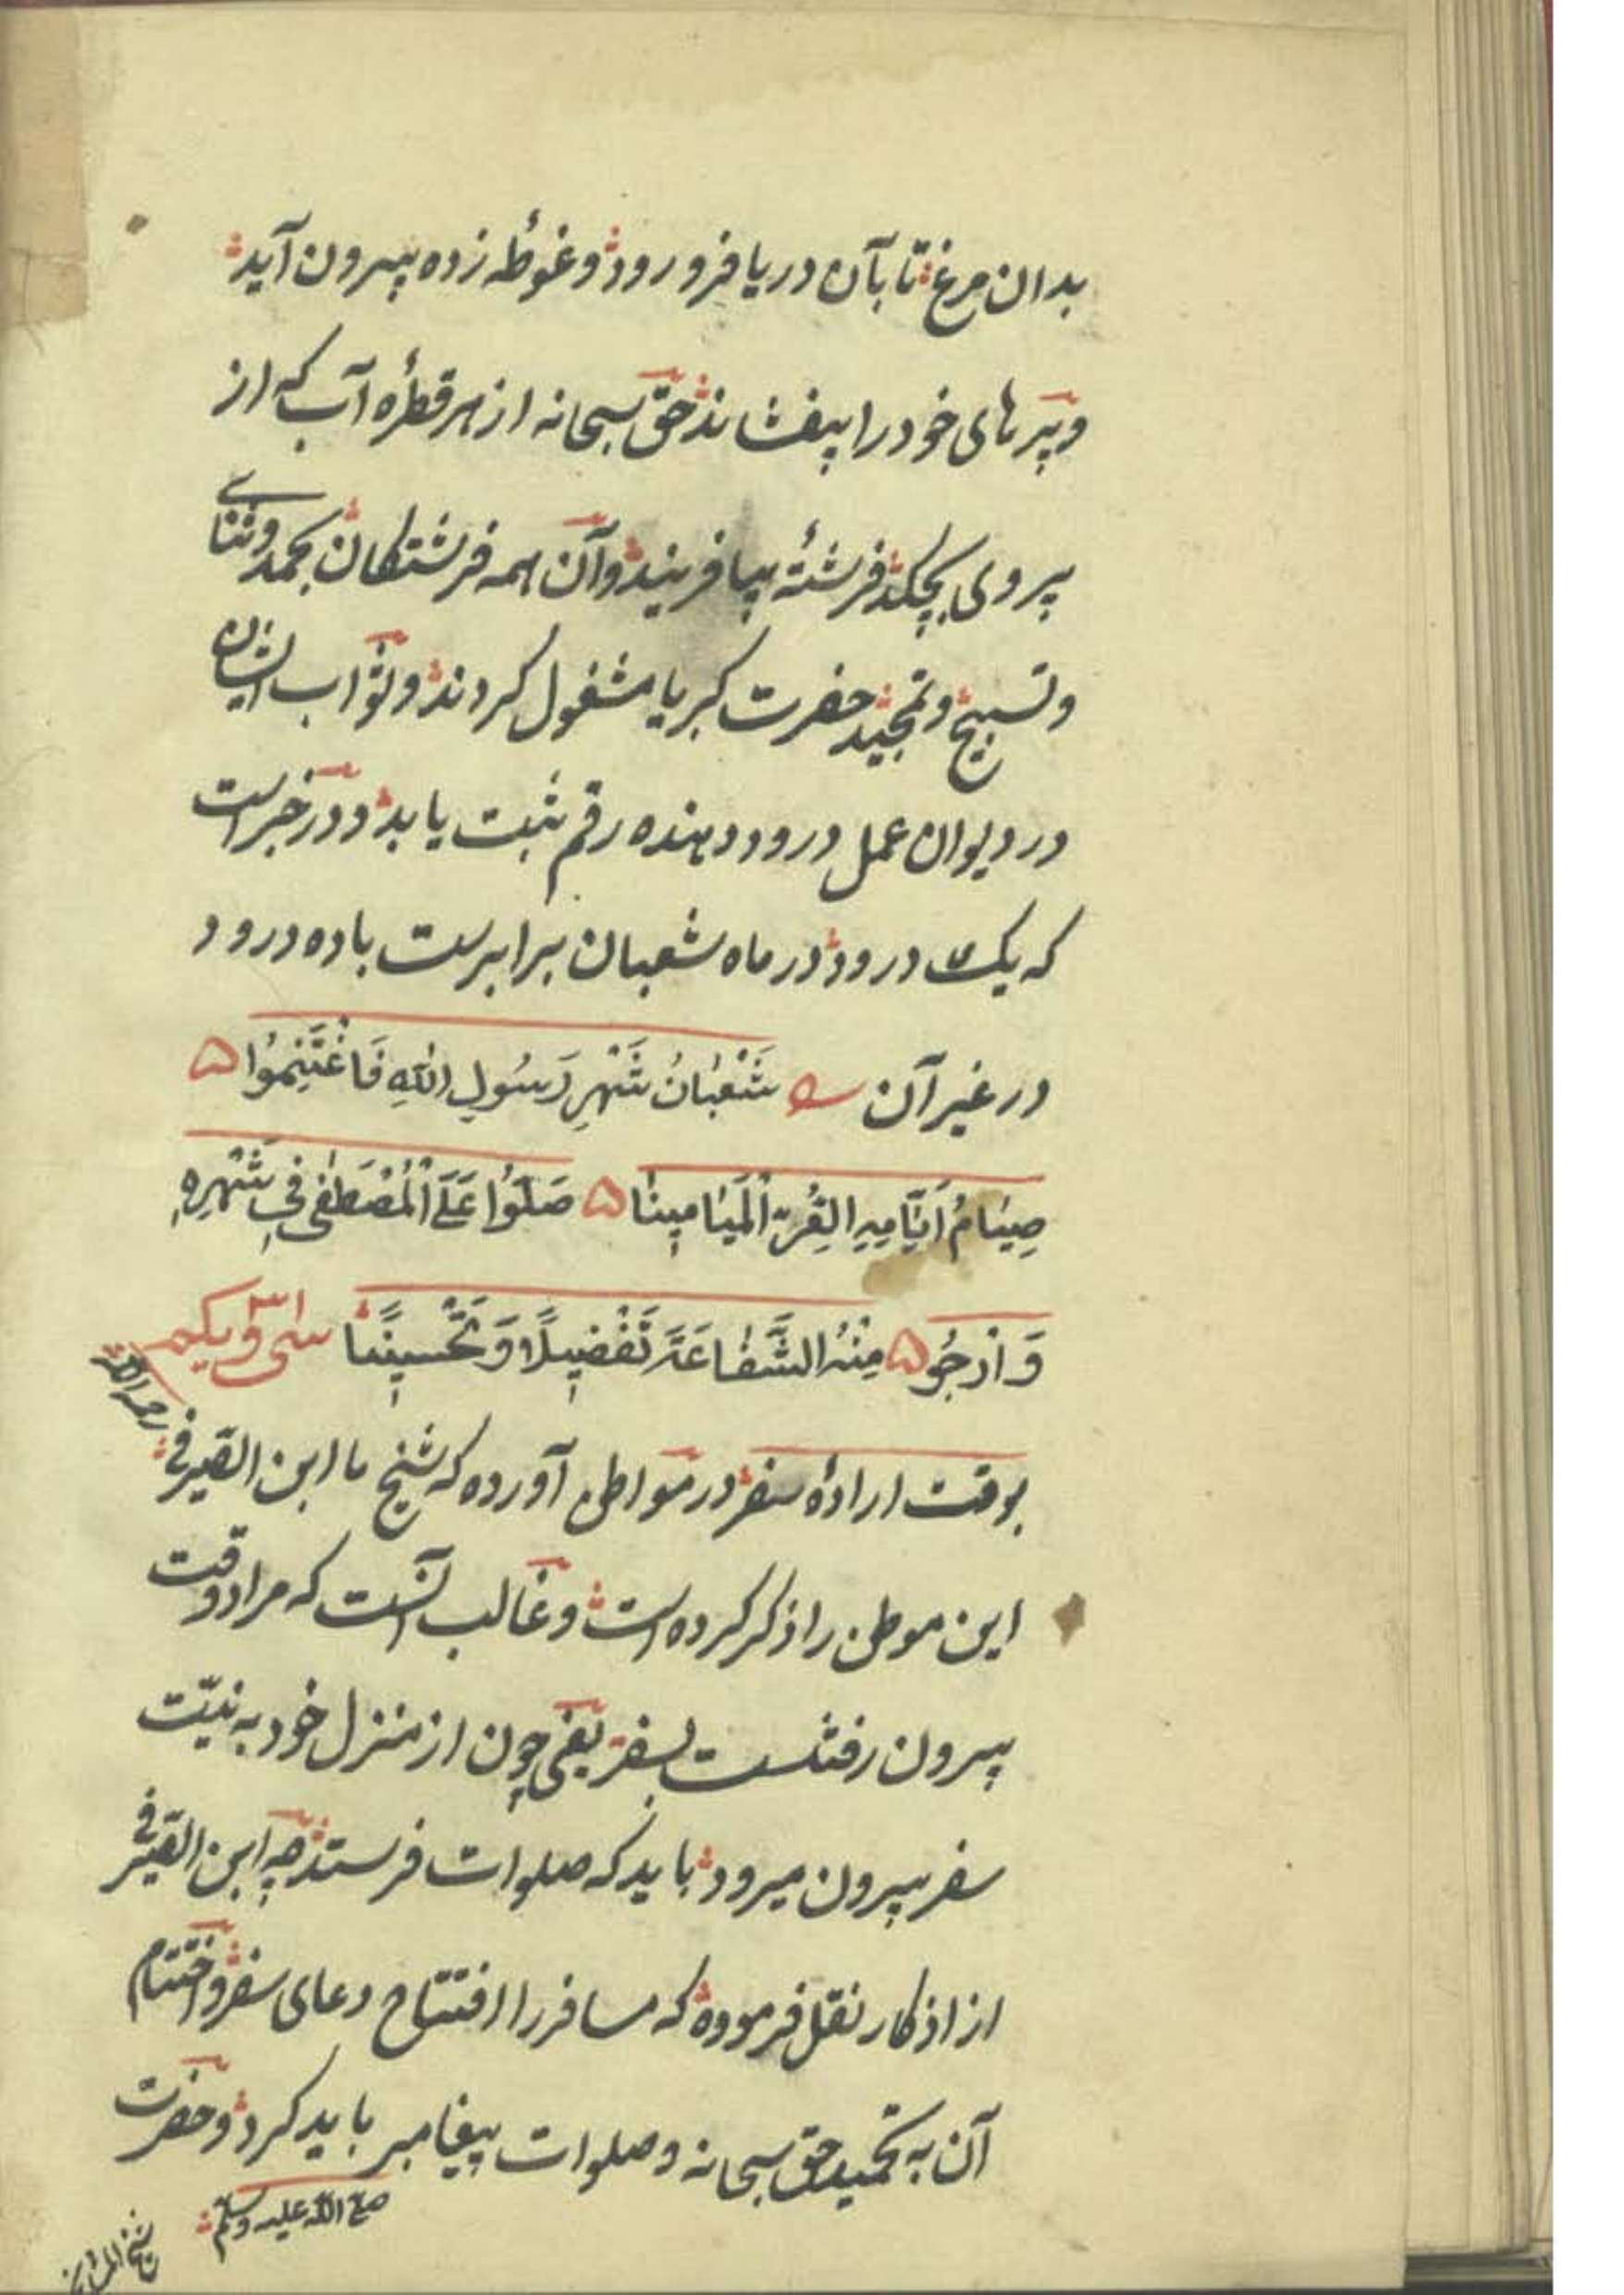 بدان مرغ تا بآن دریا فرو رود و غوطه زده بیرون آید
و پرهای خود را بیفشاند حق سبحانه از هر قطره آب که از
پر وی بچکد فرشتهٔ بیافریند و آن همه فرشتگان بحمد و ثنای
و تسبیح و تمجید حضرت کبریا مشغول کردند و ثواب ایشان
در دیوان عمل درود دهنده رقم ثبت یابد و در خبر است
که یک درود در ماه شعبان برابرست باده درود
در غیر آن شَعْبٰانُ شَهْرِ رَسُولِ اللّٰهِ فَاغْتَنِمُوا
صِیٰامُ اَیّٰامِهِ الغُرِّ الْمَیٰامِینٰا صَلُّوا عَلَی الْمُصْطَفٰی فِی شَهْرِهِ
وَ ارْجُو مِنْهُ الشَّفٰاعَةَ تَفْضِیلًا وَ تَحْسِینًا سی و یکم ۳۱
بوقت ارادهٔ سفر در مواطن آورده که شیخ ما ابن الصیرفی
رحمه الله
این موطن را ذکر کرده است و غالب آنست که مراد وقت
بیرون رفتنست بسفر یعنی چون از منزل خود به نیّت
سفر بیرون میرود باید که صلوات فرستد چه ابن الصیرفی
از اذکار نقل فرموده که مسافر را افتتاح دعای سفر و اختتام
آن به تحمید حق سبحانه و صلوات پیغامبر باید کرد و حضرت
صلی الله علیه وسلم
شیخ المشایخ